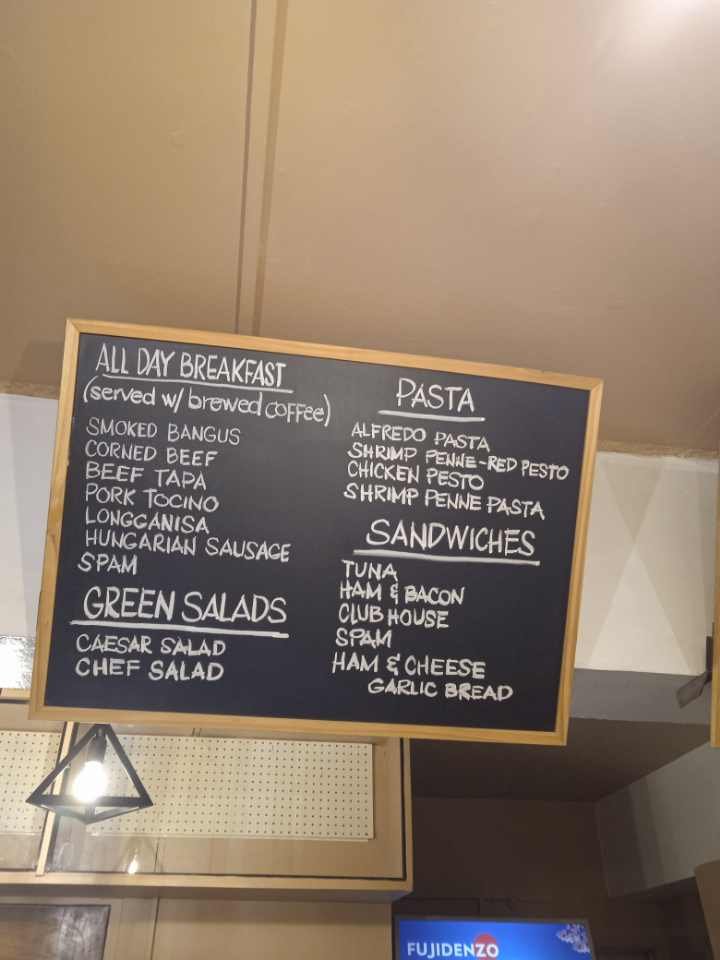 ALL DAY BREAKFAST
(served w/ brewed coffee)
SMOKED BANGUS
CORNED BEEF
BEEF TAPA
PORK TOCINO
LONGGANISA
HUNGARIAN SAUSAGE
SPAM
GREEN SALADS
CAESAR SALAD
CHEF SALAD
PASTA
ALFREDO PASTA
SHRIMP PENNE-RED PESTO
CHICKEN PESTO
SHRIMP PENNE PASTA
SANDWICHES
TUNA
HAM & BACON
CLUB HOUSE
SPAM
HAM & CHEESE
GARLIC BREAD
FUJIDENZO